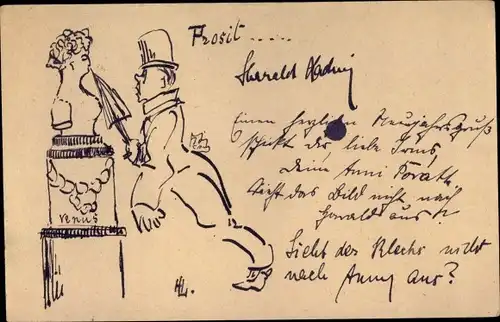 Prosit.....
Harald
Einen herzlichen Neujahrsgruß
schickt dir, liebe
deine Anni
Sieht das Bild nicht nach
Harald aus?!
Sieht der Klecks nicht
nach Anny aus?
VENUS
12
HL.